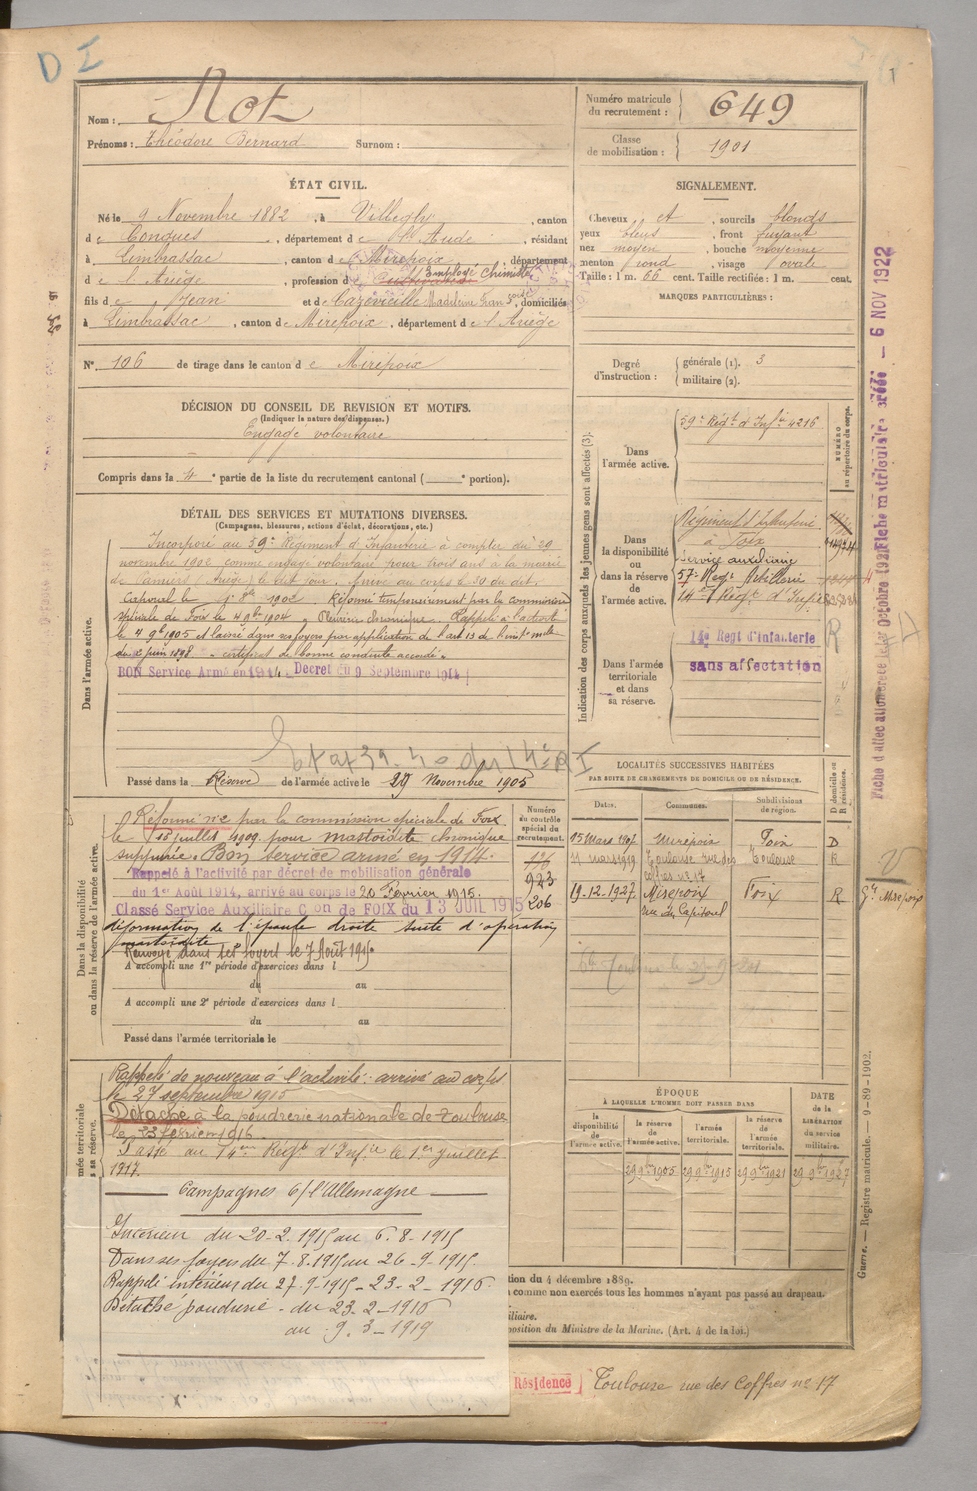 D I
Nom : Not
Prénoms : Théodore Bernard Surnom :
Numéro matricule du recrutement : 649
Classe de mobilisation : 1901
ÉTAT CIVIL.
Né le 9 Novembre 1882, à Villegly, canton
de Conques, département de l'Aude, résidant
à Limbrassac, canton de Mirepoix, département
de l'Ariège, profession de Cultivateur Employé Chimiste
fils de Jean et de Cazevieille Madeleine Françoise, domiciliés
à Limbrassac, canton de Mirepoix, département de l'Ariège
N° 106 de tirage dans le canton de Mirepoix
SIGNALEMENT.
Cheveux et, sourcils blonds
yeux bleus, front fuyant
nez moyen, bouche moyenne
menton rond, visage ovale
Taille : 1 m. 66 cent. Taille rectifiée : 1 m. cent.
MARQUES PARTICULIÈRES :
Degré d'instruction : générale (1). 3
militaire (2).
DÉCISION DU CONSEIL DE REVISION ET MOTIFS.
(Indiquer la nature des dispenses.)
Engagé volontaire
Compris dans la 4e partie de la liste du recrutement cantonal ( e portion).
DÉTAIL DES SERVICES ET MUTATIONS DIVERSES.
(Campagnes, blessures, actions d'éclat, décorations, etc.)
Dans l'armée active.
Incorporé au 59e Régiment d'Infanterie à compter du 29
novembre 1902 comme engagé volontaire pour trois ans à la mairie
de Pamiers (Ariège) le dit jour. Arrivé au corps le 30 du dit.
Caporal le Réformé temporairement par la commission
spéciale de Foix le 4 9bre 1904 Pleurésie chronique. Rappelé à l'activité
le 4 9bre 1905 et laissé dans ses foyers par application de
certificat de bonne conduite accordé.
BON Service Armé en 1914. Décret du 9 Septembre 1914
Passé dans la Réserve de l'armée active le 29 Novembre 1905
Indication des corps auxquels les jeunes gens sont affectés (3).
NUMÉRO au répertoire du corps.
Dans l'armée active.
59e Régt d'Infie 4216
Dans la disponibilité ou dans la réserve de l'armée active.
Régiment d'Infanterie
à Foix
Service auxiliaire
57e Regt Artillerie
14e Régt d'Infie
Dans l'armée territoriale et dans sa réserve.
14e Regt d'Infanterie
sans affectation
R
Dans la disponibilité ou dans la réserve de l'armée active.
Réformé n°2 par la commission spéciale de Foix
le 15 juillet 1909 pour mastoïdite chronique
suppurée. Bon service armé en 1914.
Rappelé à l'activité par décret de mobilisation générale
du 1er Août 1914, arrivé au corps le 20 Février 1915.
Classé Service Auxiliaire Con de FOIX du 13 JUIL 1915
déformation de l'épaule droite suite d'opération
mastoïdite
Renvoyé dans ses foyers le 7 Août 1915
A accompli une 1re période d'exercices dans l
du au
A accompli une 2e période d'exercices dans l
du au
Passé dans l'armée territoriale le
Numéro du contrôle spécial du recrutement.
923
206
LOCALITÉS SUCCESSIVES HABITÉES
PAR SUITE DE CHANGEMENTS DE DOMICILE OU DE RÉSIDENCE.
Dates. Communes. Subdivisions de région. D domicile ou R résidence.
15 Mars 1907 Mirepoix Foix D
11 mars 1919 Toulouse rue des Coffres n° 17 Toulouse R
19-12-1927 Mirepoix rue du Capitoul Foix R
Gie Mirepoix
Rappelé de nouveau à l'activité : arrivé au corps
le 27 septembre 1915
Détaché à la poudrerie nationale de Toulouse
le 23 février 1916.
Passé au 14ème Régt d'Infie le 1er juillet
1917.
Campagnes c/ l'Allemagne
Intérieur du 20-2-1915 au 6-8-1915
Dans ses foyers du 7-8-1915 au 26-9-1915
Rappelé intérieur du 27-9-1915 - 23-2-1916
Détaché poudrerie - du 23-2-1916
au 9-3-1919
ÉPOQUE
À LAQUELLE L'HOMME DOIT PASSER DANS
la disponibilité de l'armée active. la réserve de l'armée active. l'armée territoriale. la réserve de l'armée territoriale. DATE de la LIBÉRATION du service militaire.
29 9bre 1905 29 9bre 1915 29 9bre 1921 29 9bre 1927
tion du 4 décembre 1889.
comme non exercés tous les hommes n'ayant pas passé au drapeau.
iliaire.
position du Ministre de la Marine. (Art. 4 de la loi.)
Résidence Toulouse rue des Coffres n° 17
6 NOV 1922
Guerre. — Registre matricule. 9-89-1902.